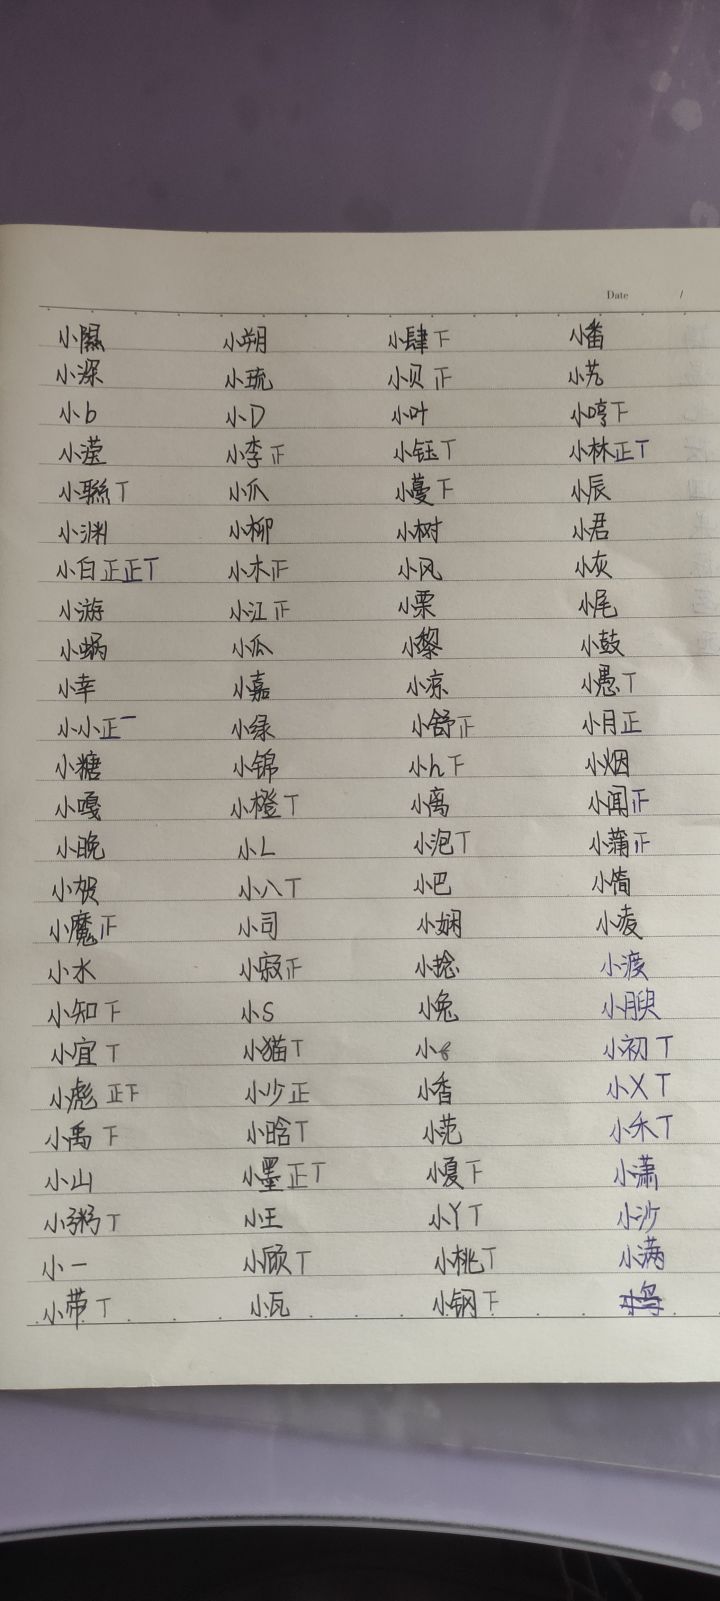 Date /
小隰 小朔 小肆下 小番
小深 小琉 小贝正 小艽
小b 小D 小叶 小哼下
小滢 小李正 小钰丅 小林正丅
小联丅 小爪 小蔓下 小辰
小渊 小柳 小树 小君
小白正正丅 小木正 小风 小灰
小游 小江正 小栗 小尾
小蜗 小瓜 小黎 小鼓
小幸 小嘉 小京 小愚丅
小小正一 小绿 小舒正 小月正
小糖 小锦 小h下 小烟
小嘎 小橙丅 小离 小闻正
小晚 小L 小泡丅 小蒲正
小贺 小八丅 小巴 小简
小魔正 小司 小娴 小凌
小水 小寂正 小捻 小渡
小知下 小S 小兔 小腴
小宜丅 小猫丅 小 小初丅
小彪正下 小少正 小香 小乂丅
小禹下 小晗丅 小范 小禾丅
小山 小墨正丅 小夏下 小潇
小粥丅 小王 小丫丅 小沙
小一 小顾丅 小桃丅 小满
小带丅 小瓦 小钢下 小鸟